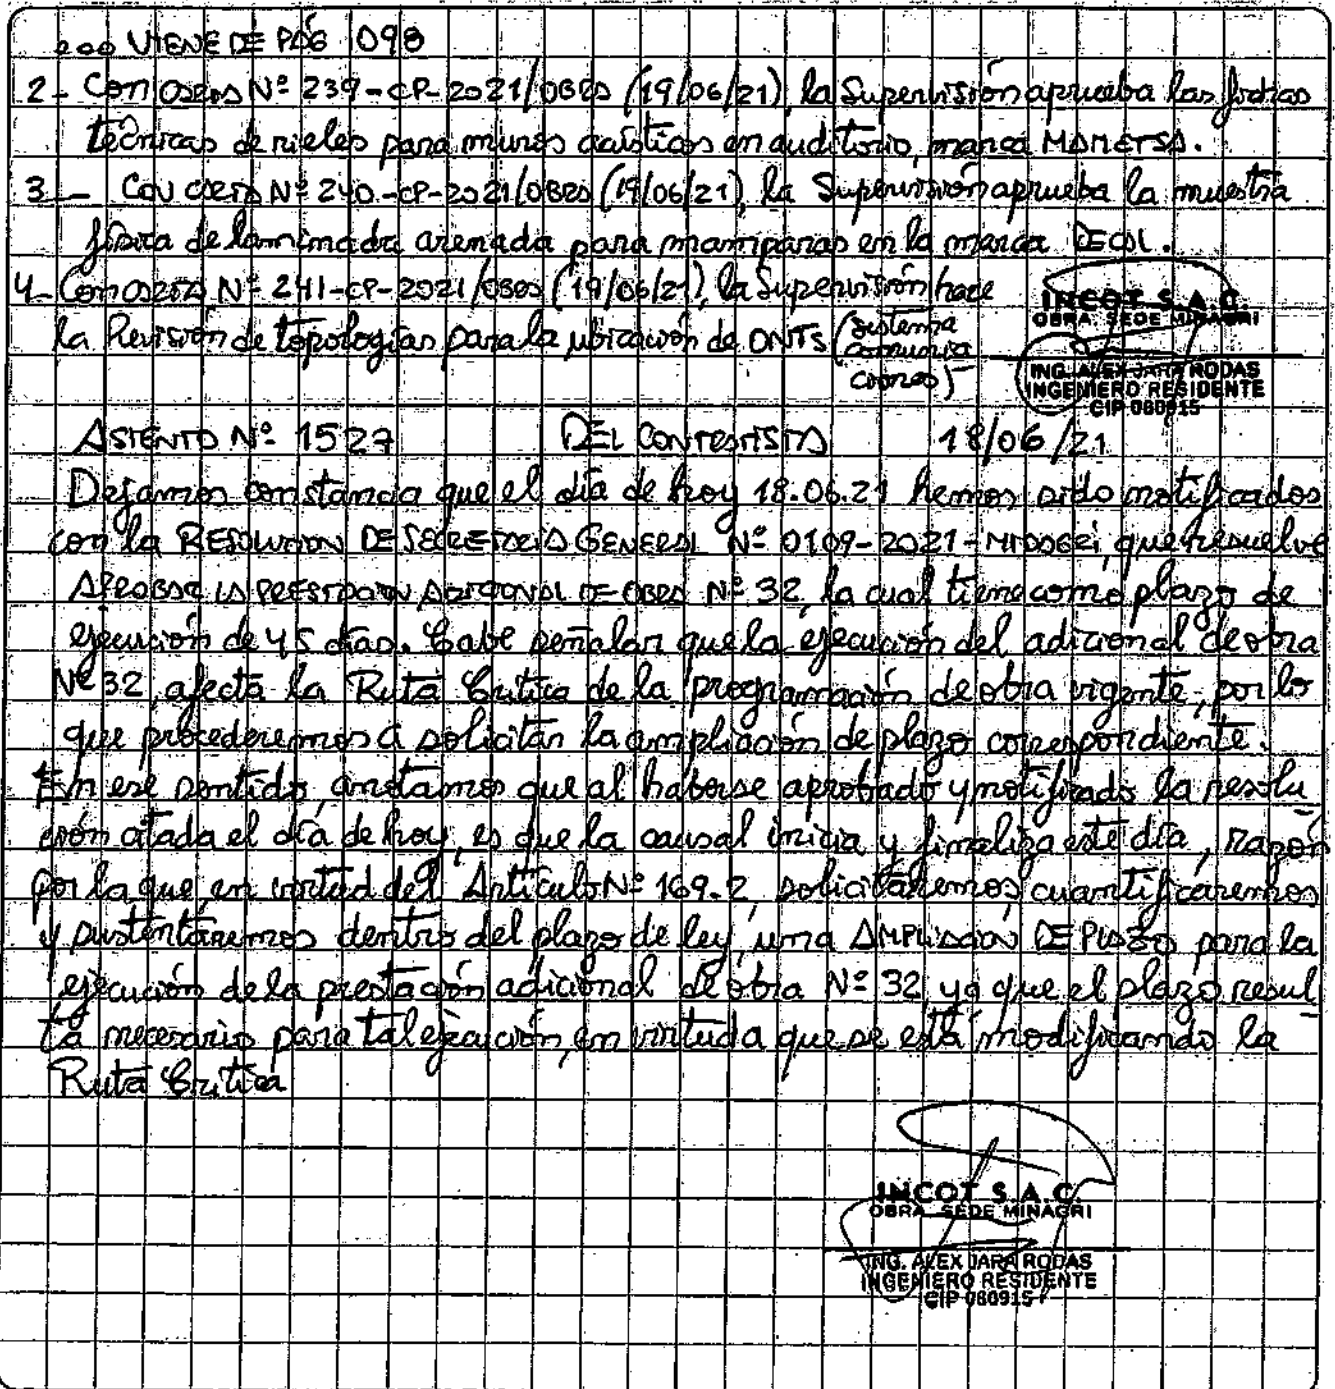 ... VIENE DE PÁG 098
2- Con Nº 239-CP-2021/OBRA (19/06/21), la Supervisión aprueba las fichas
técnicas de rieles para muros acústicos en auditorio, marca MAMETSA.
3.- Con Nº 240-CP-2021/OBRA (19/06/21), la Supervisión aprueba la muestra
física de laminada arenada para mamparas en la marca DECOL.
4- Con Nº 241-CP-2021/OBRA (19/06/21), la Supervisión hace
la Revisión de topologías para la ubicación de ONTS (Sistema
comunica
ciones)
INCOT S.A.C.
OBRA SEDE MINAGRI
ING. ALEX JARA RODAS
INGENIERO RESIDENTE
CIP 080915
ASIENTO Nº 1527 DEL CONTRATISTA 18/06/21
Dejamos constancia que el día de hoy 18.06.21 hemos sido notificados
con la RESOLUCION DE SECRETARIA GENERAL Nº 0109-2021-MIDAGRI, que resuelve
APROBAR LA PRESTACION ADICIONAL DE OBRA Nº 32, la cual tiene como plazo de
ejecución de 45 días. Cabe señalar que la ejecución del adicional de obra
Nº 32, afecta la Ruta Crítica de la programación de obra vigente, por lo
que procederemos a solicitar la ampliación de plazo correspondiente.
En ese sentido, anotamos que al haberse aprobado y notificado la resolu
ción citada el día de hoy, es que la causal inicia y finaliza este día, razón
por la que, en virtud del Artículo Nº 169.2, solicitaremos, cuantificaremos
y sustentaremos dentro del plazo de ley, una AMPLIACION DE PLAZO para la
ejecución de la prestación adicional de obra Nº 32, ya que el plazo resul
ta necesario para tal ejecución, en virtuda que se está modificando la
Ruta Crítica
INCOT S.A.C.
OBRA SEDE MINAGRI
ING. ALEX JARA RODAS
INGENIERO RESIDENTE
CIP 080915